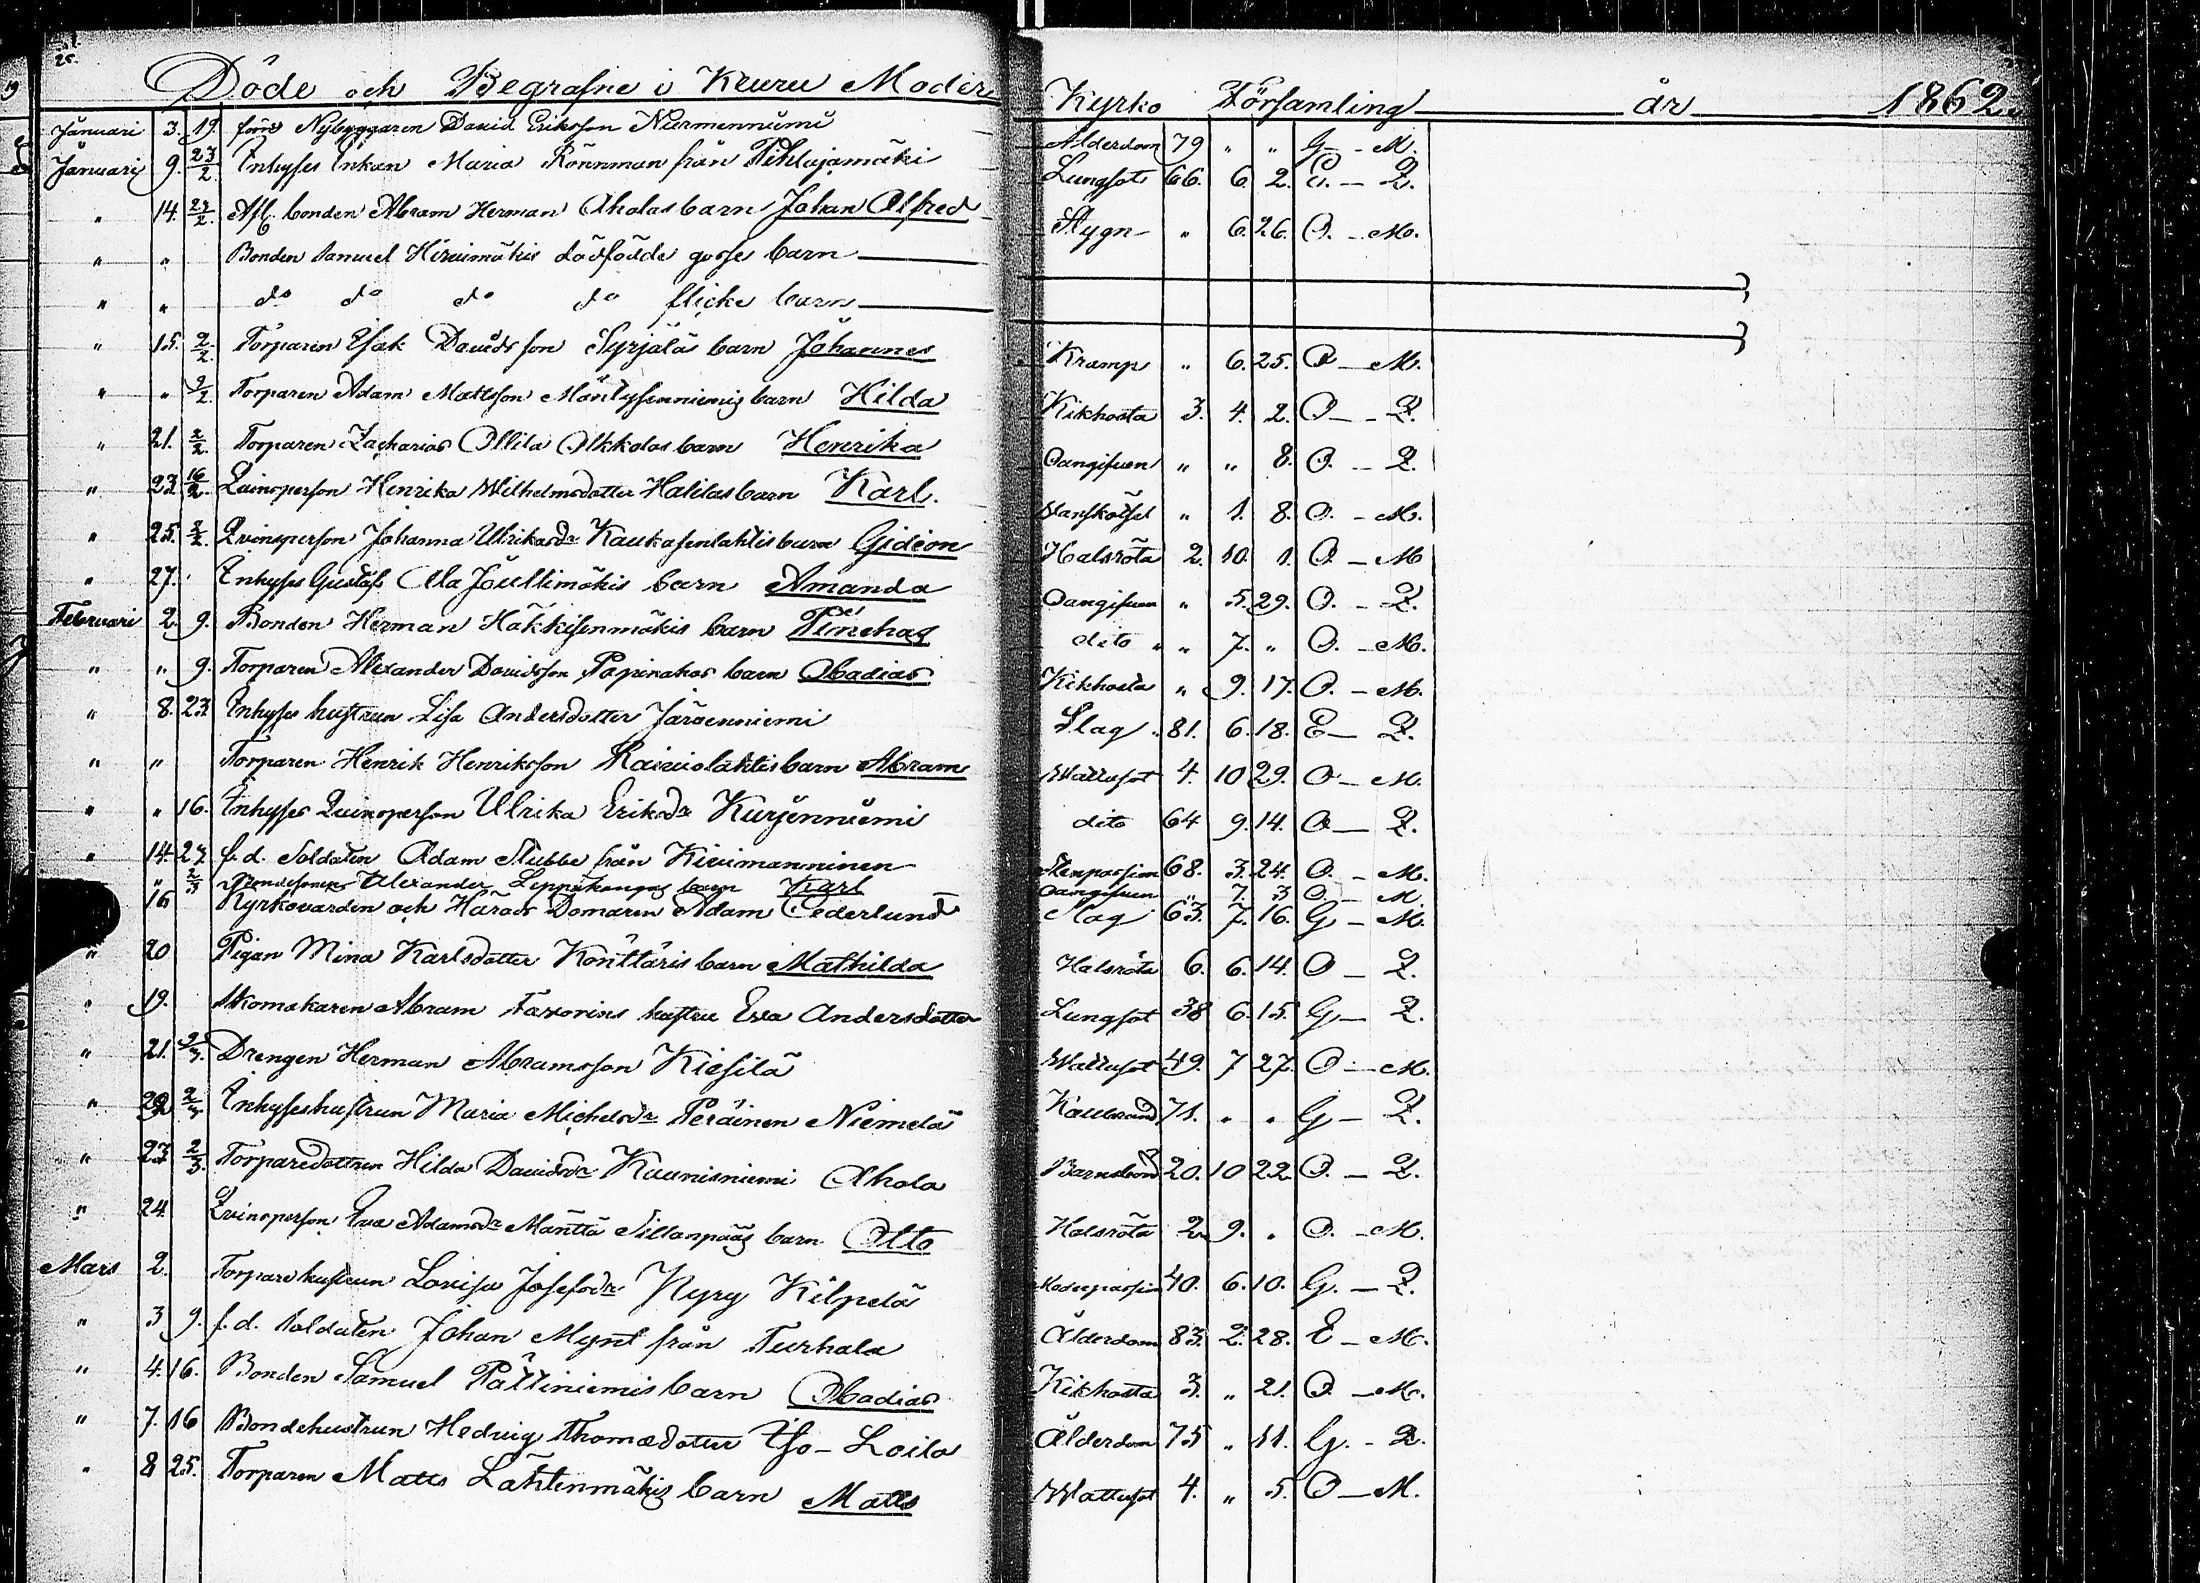 Döde och Begrafne i Keuru Moder Kyrko Församling år 1862.
Januari 3. 19. Nybyggaren David Eriksson Nurmenniemi Ålderdom 79 " " G. - M.
Januari 9. 23/2. Inhyses Enkan Maria Rönnman från Pihlajamäki Lungsot 66. 6. 2. E. - Q.
" 14. 23/2. Afl. bonden Abram Herman Aholas barn Johan Alfred Stygn " 6. 26. O. - M.
" " Bonden Samuel Hirvimäkis dödfödde gosse barn
" " do do do do flicke barn
" 15. 2/2. Torparen Isak Davidsson Syrjäläs barn Johannes Kramp " 6. 25. O - M.
" " 9/2. Torparen Adam Mattsson Mäntysenniemis barn Hilda Kikhosta 3. 4. 2. O - Q.
" 21. 2/2. Torparen Zacharias Ollila Akkolas barn Henrika Oangifven " " 8. O. - Q.
" 23. 16/2. Qvinsperson Henrika Wilhelmsdotter Halilas barn Karl. Wanskötsel " 1. 8. O. - M.
" 25. 2/2. Qvinsperson Johanna Ulrikasdr Kaukasenlahtis barn Gideon Halsröta 2. 10. 1. O - M
" 27. Inhyses Gustaf Ala Joultimäkis barn Amanda Oangifven " 5. 29. O. - Q.
Februari 2. 9. Bonden Herman Häkkisenmäkis barn Pinehas dito " " 7. " O. - M.
" " 9. Torparen Alexander Davidsson Papinahos barn Obadias Kikhosta " 9. 17. O. - M.
" 8. 23. Inhyses hustrun Lisa Andersdotter Järvenniemi Slag 81. 6. 18. E - Q.
" " Torparen Henrik Henriksson Raiviolahtis barn Abram Wattusot 4. 10 29. O - M.
" " 16. Inhyses Qvinsperson Ulrika Eriksdr Kurjenniemi dito 64 9. 14. O - Q.
" 14. 27. f.d. Soldaten Adam Stubbe från Kivimanninen Stenpassion 68. 3. 24. O. - M.
" 2/3 Bondesonen Alexander Leppäkangas barn Karl Oangifven " 7. 3 O - M
16 Kyrkovärden och Härads Domaren Adam Cederlund Slag 63. 7. 16. G - M.
" 20 Pigan Mina Karlsdotter Könttäris barn Mathilda Halsröta 6. 6. 14. O - Q.
" 19. Skomakaren Abram Favorins hustru Eva Andersdotter Lungsot 38 6. 15. G - Q.
" 21. 2/3. Drengen Herman Abramsson Kiesilä Wattusot 49. 7 27. O - M.
" 2/3. Inhyseshustrun Maria Michelsdr Peräinen Niemelä Kallbrand 71. " " G - Q.
" 23 2/3. Torparedottren Hilda Davidsdr Kaunisniemi Ahola Barnsbörd 20. 10 22. O. - Q.
" 24. Qvinsperson Eva Adamsdr Mänttä Sillanpääs barn Otto Halsröta 2 9. " O. - M.
Mars 2. Torpare hustrun Lovisa Josefsdr Nyry Kilpelä Moderpassion 40. 6. 10. G. - Q.
" 3 9. f.d. Soldaten Johan Mynt från Turhala Ålderdom 83. 2. 28. E - M.
" 4. 16. Bonden Samuel Pättiniemis barn Obadias Kikhosta 3. " 21. O. - M.
" 7. 16 Bondehustrun Hedvig Thomædotter Iso-Loila Ålderdom 75 " 11. G. - Q.
" 8 25. Torparen Matts Lahtenmäkis barn Matts Wattusot 4. " 5. O - M.